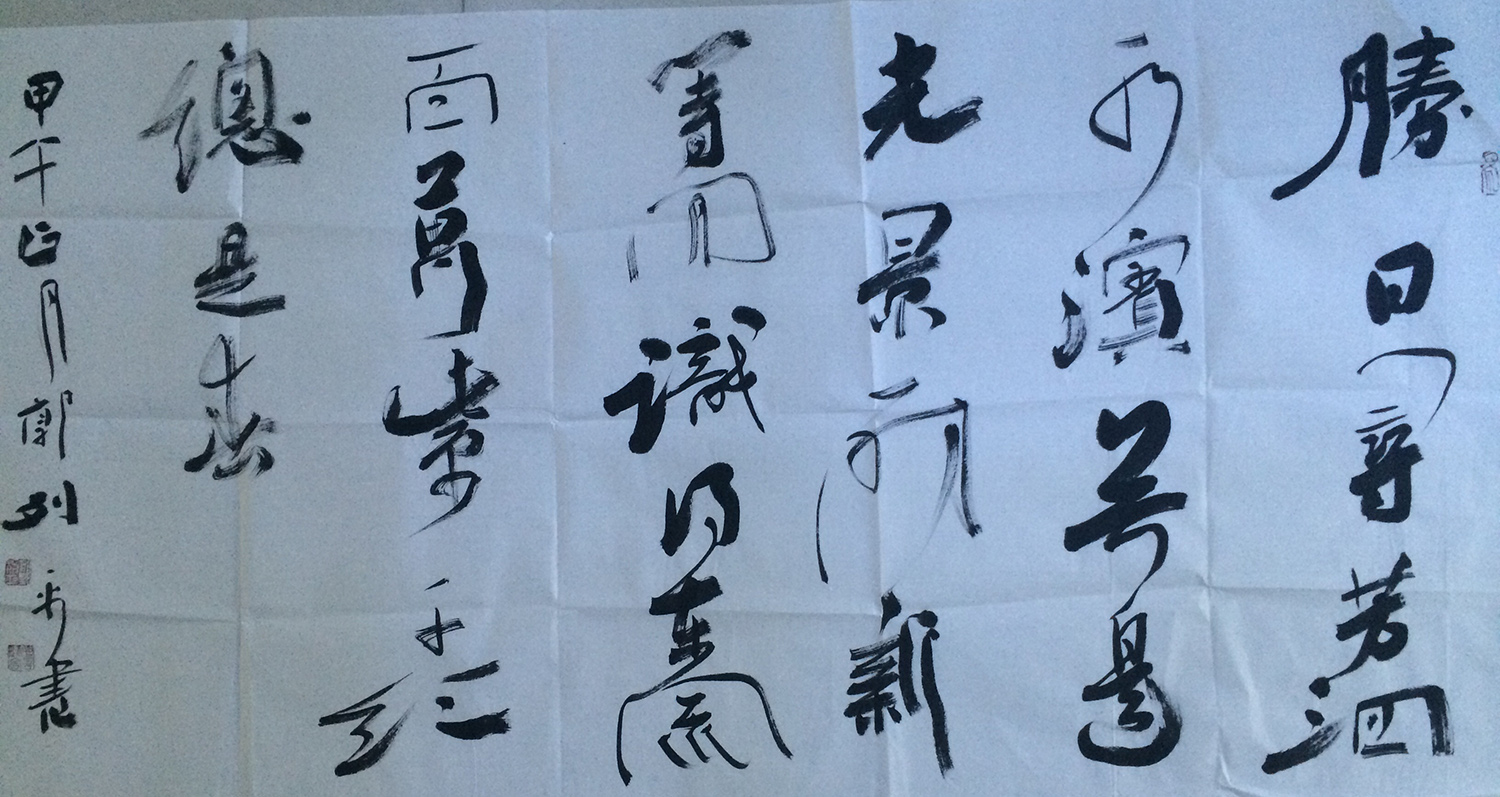 勝日尋芳泗
水濱無邊
光景一時新
等閒識得東風
面萬紫千紅
總是春
甲午正月郭列書